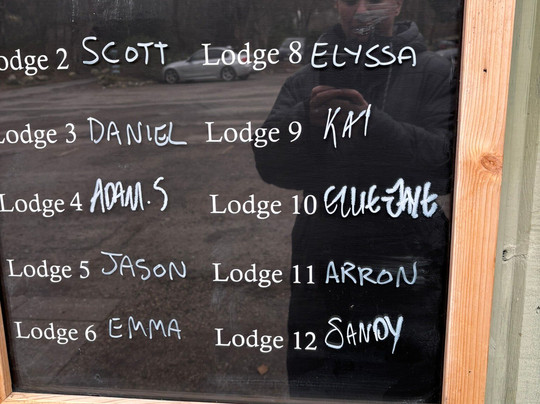 odge 2 SCOTT Lodge 8 ELYSSA
Lodge 3 DANIEL Lodge 9 KAI
Lodge 4 ADAM.S Lodge 10 ELLIE-JANE
Lodge 5 JASON Lodge 11 ARRON
Lodge 6 EMMA Lodge 12 SANDY